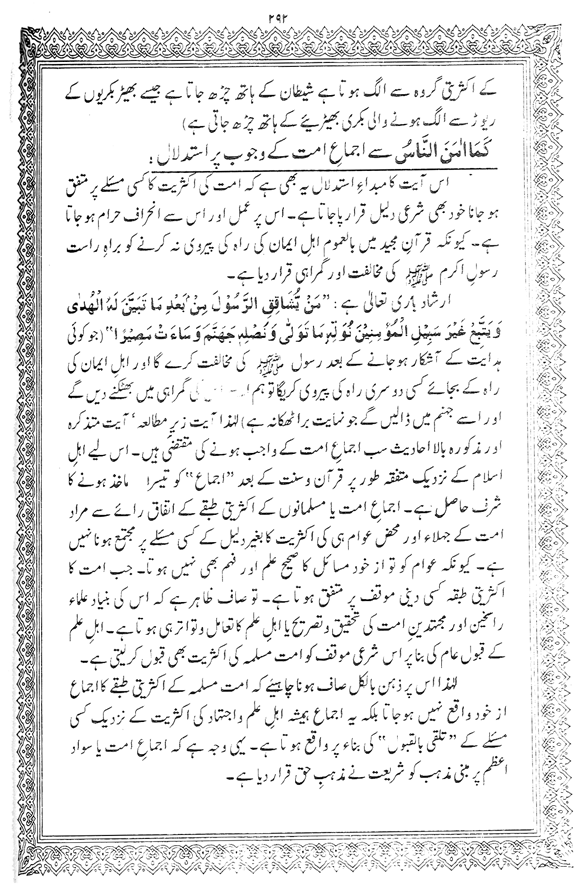 ۲۹۲
کے اکثریتی گروہ سے الگ ہوتا ہے شیطان کے ہاتھ چڑھ جاتا ہے جیسے بھیڑ بکریوں کے
ریوڑ سے الگ ہونے والی بکری بھیڑیئے کے ہاتھ چڑھ جاتی ہے)
کَمَا اٰمَنَ النَّاسُ سے اجماعِ امت کے وجوب پر استدلال :
اس آیت کا مبداءِ استدلال یہ بھی ہے کہ امت کی اکثریت کا کسی مسئلے پر متفق
ہو جانا خود بھی شرعی دلیل قرار پا جاتا ہے۔ اس پر عمل اور اس سے انحراف حرام ہو جاتا
ہے۔ کیونکہ قرآنِ مجید میں بالعموم اہلِ ایمان کی راہ کی پیروی نہ کرنے کو براہِ راست
رسولِ اکرم ﷺ کی مخالفت اور گمراہی قرار دیا ہے۔
ارشاد باری تعالیٰ ہے : ”مَنْ یُّشَاقِقِ الرَّسُوْلَ مِنْ بَعْدِ مَا تَبَیَّنَ لَهُ الْهُدٰی
وَیَتَّبِعْ غَیْرَ سَبِیْلِ الْمُؤْمِنِیْنَ نُوَلِّهٖ مَا تَوَلّٰی وَنُصْلِهٖ جَهَنَّمَ وَسَاءَتْ مَصِیْرًا“ (جو کوئی
ہدایت کے آشکار ہو جانے کے بعد رسول ﷺ کی مخالفت کرے گا اور اہلِ ایمان کی
راہ کے بجائے کسی دوسری راہ کی پیروی کریگا تو ہم گمراہی میں بھٹکنے دیں گے
اور اسے جہنم میں ڈالیں گے جو نہایت برا ٹھکانہ ہے) لہٰذا آیت زیرِ مطالعہ‘ آیت متذکرہ
اور مذکورہ بالا احادیث سب اجماعِ امت کے واجب ہونے کی مقتضی ہیں۔ اس لیے اہلِ
اسلام کے نزدیک متفقہ طور پر قرآن و سنت کے بعد ”اجماع“ کو تیسرا ماخذ ہونے کا
شرف حاصل ہے۔ اجماعِ امت یا مسلمانوں کے اکثریتی طبقے کے اتفاق رائے سے مراد
امت کے جہلاء اور محض عوام ہی کی اکثریت کا بغیر دلیل کے کسی مسئلے پر مجتمع ہونا نہیں
ہے۔ کیونکہ عوام کو تو از خود مسائل کا صحیح علم اور فہم بھی نہیں ہوتا۔ جب امت کا
اکثریتی طبقہ کسی دینی موقف پر متفق ہوتا ہے۔ تو صاف ظاہر ہے کہ اس کی بنیاد علماء
راسخین اور مجتہدینِ امت کی تحقیق و تصریح یا اہلِ علم کا تعامل و تواتر ہی ہوتا ہے۔ اہلِ علم
کے قبولِ عام کی بناء پر اس شرعی موقف کو امت مسلمہ کی اکثریت بھی قبول کر لیتی ہے۔
لہٰذا اس پر ذہن بالکل صاف ہونا چاہیئے کہ امت مسلمہ کے اکثریتی طبقے کا اجماع
از خود واقع نہیں ہو جاتا بلکہ یہ اجماع ہمیشہ اہلِ علم و اجتہاد کی اکثریت کے نزدیک کسی
مسئلے کے ”تلقی بالقبول“ کی بناء پر واقع ہوتا ہے۔ یہی وجہ ہے کہ اجماعِ امت یا سوادِ
اعظم پر مبنی مذہب کو شریعت نے مذہبِ حق قرار دیا ہے۔